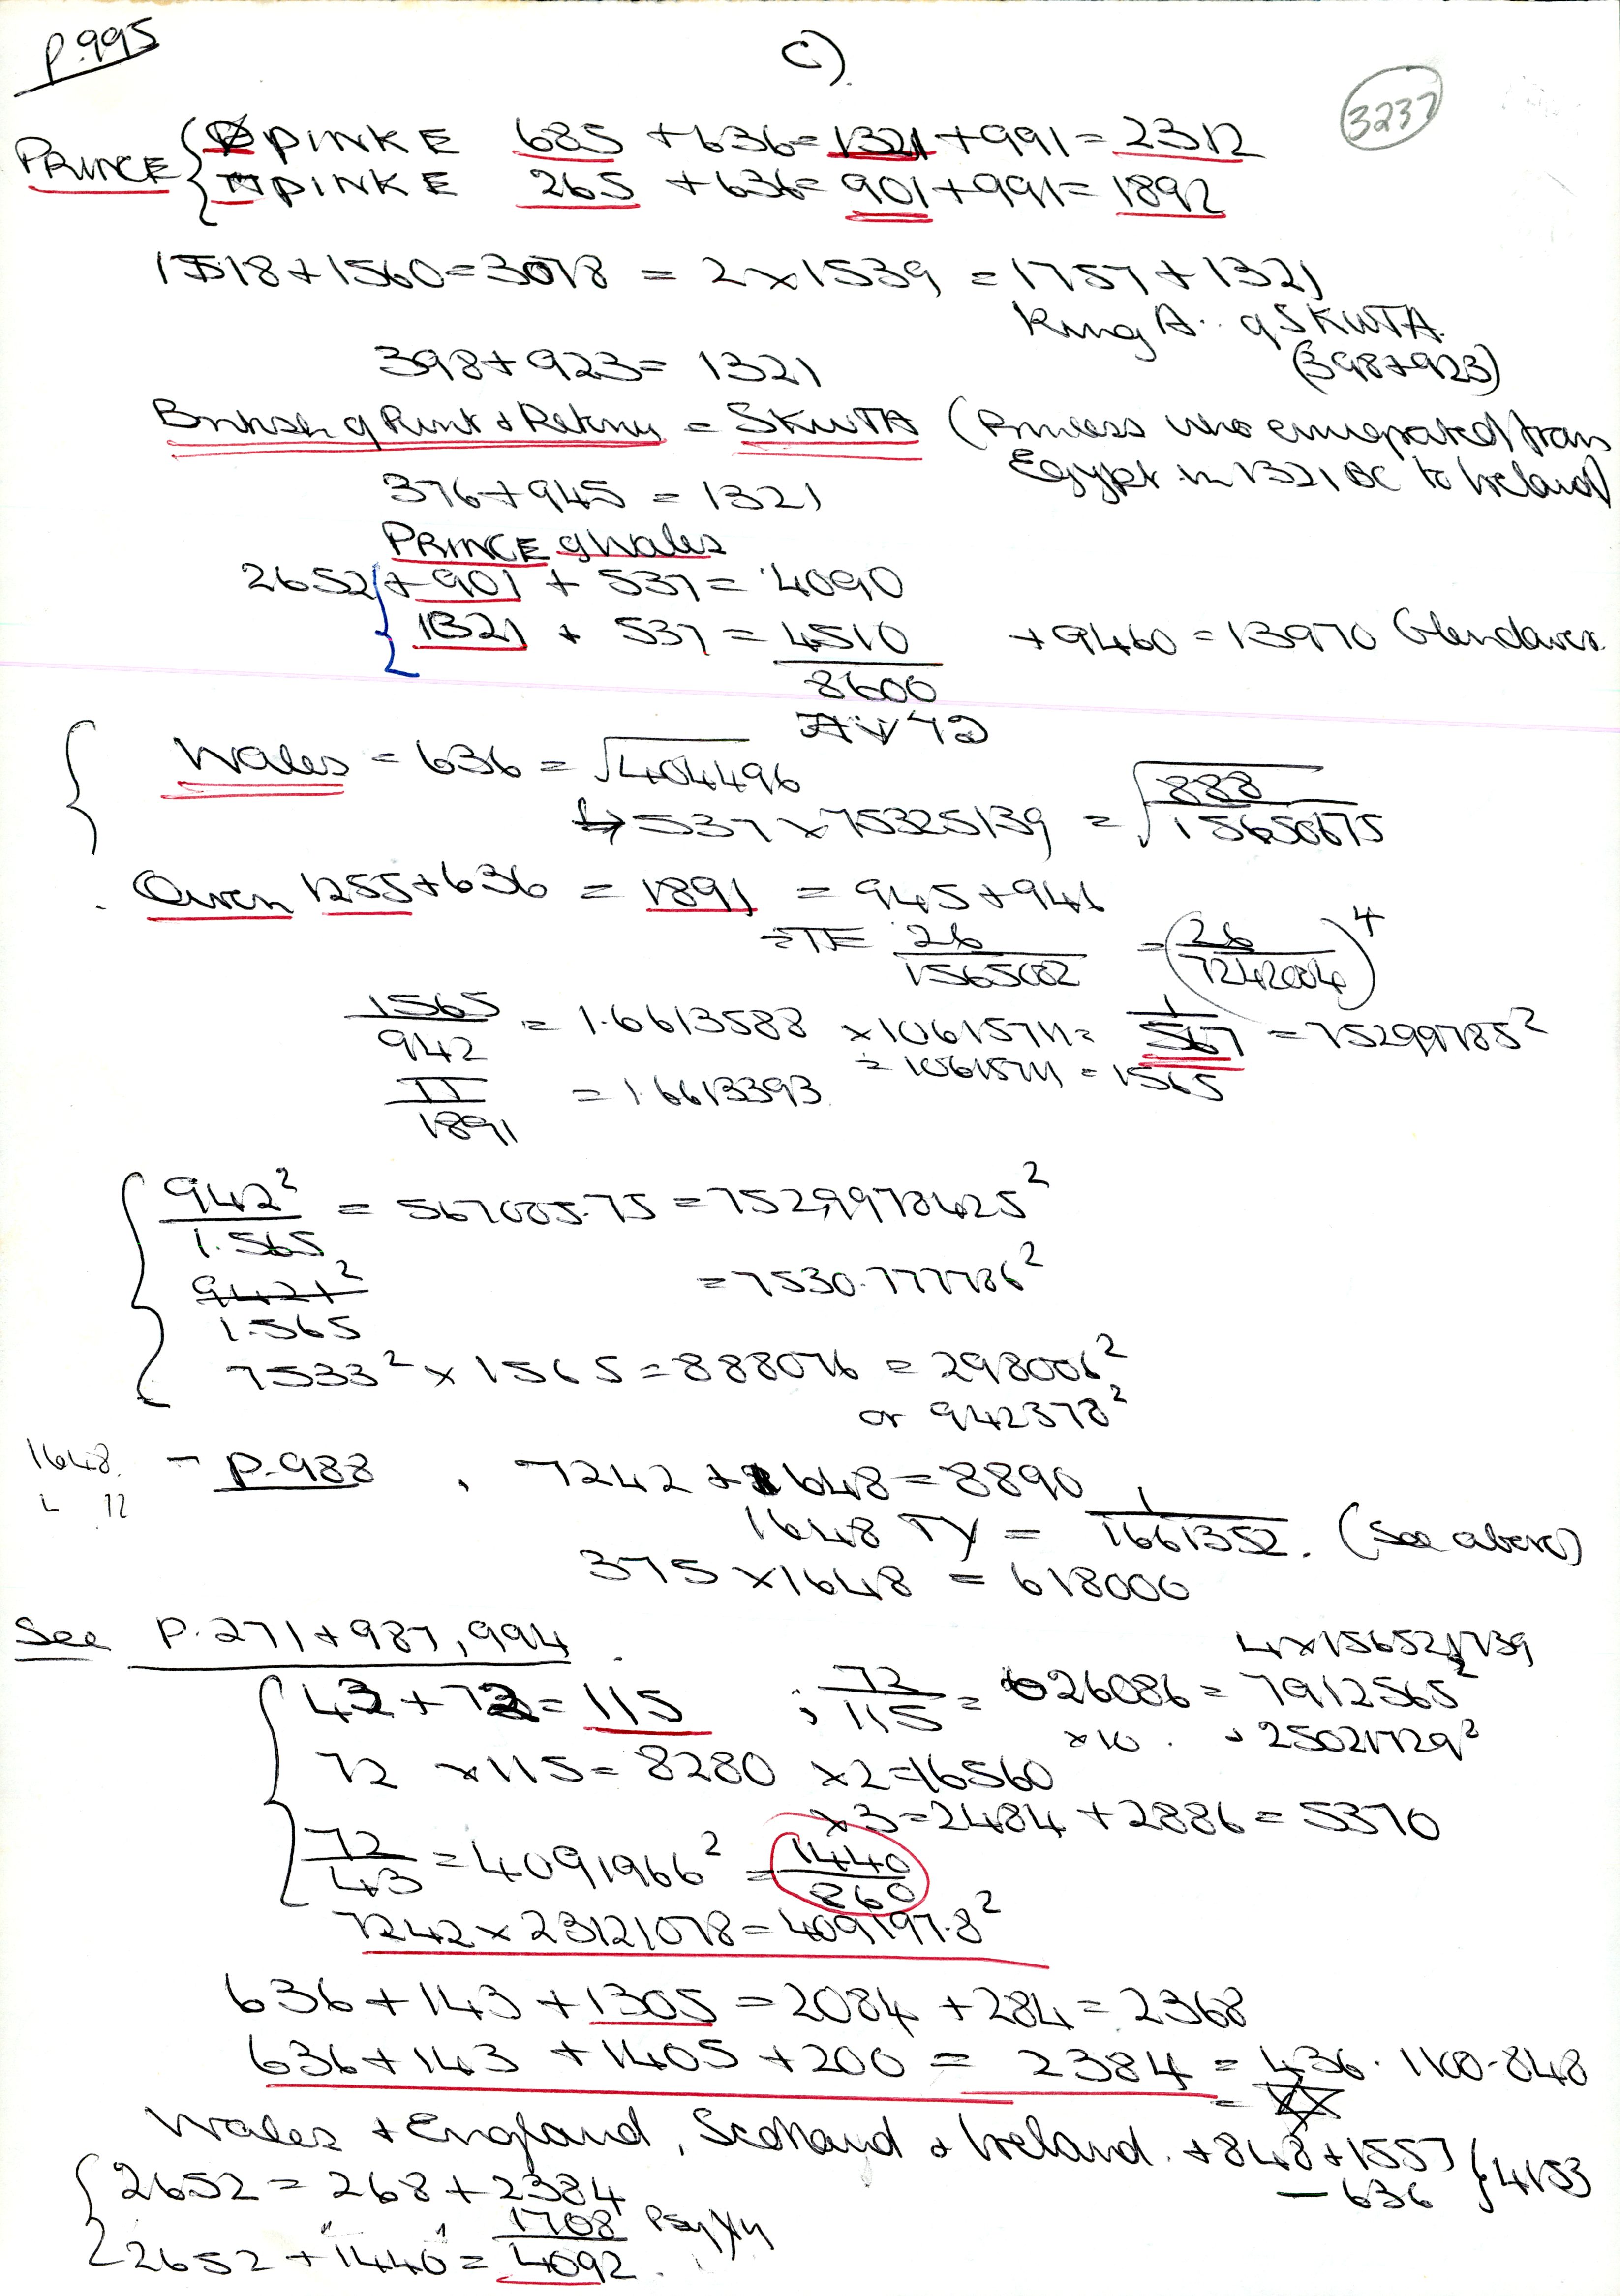 p.995
C)
3237
PRINCE { PINKE 685 + 636 = 1321 + 991 = 2312
PINKE 265 + 636 = 901 + 991 = 1892
1518 + 1560 = 3078 = 2 x 1539 = 1757 + 1321
King A.. of SKWTA.
398 + 923 = 1321 (398+923)
British of Punt & Retenu = SKWTA (Princess who emigrated from
Egypt in 1321 BC to Ireland)
376 + 945 = 1321
PRINCE of Wales
2652 + 901 + 537 = 4090
1321 + 537 = 4510 + 9460 = 13970 Glendower.
8600
Wales = 636 = √404496
↳ 537 x 75325139 = √888/15650675
Owen 1255 + 636 = 1891 = 945 + 946
= TE 26/1565002 = (26/7242004)4
1565/942 = 1.6613588 x 10615711 = 1/567 = 75299785²
÷ 10615711 = 1565
π/1891 = 1.6613393
942²/1.565 = 567005.75 = 7529,9978425²
9421²/1.565 = 7530.777786²
7533² x 1565 = 888076 = 298006²
or 942378²
1648. - p.988 , 7242 + 1648 = 8890
L 72
1648 TY = 1/1661352. (See above)
375 x 1648 = 618000
See p.271 + 987, 994
4 x 156521739
43 + 72 = 115 ; 72/115 = 626086 = 7912565²
x 10 . 25021729²
72 x 115 = 8280 x 2 = 16560
x 3 = 2484 + 2886 = 5370
72/43 = 4091966² = 1440/860
7242 x 23121078 = 409197.8²
636 + 143 + 1305 = 2084 + 284 = 2368
636 + 143 + 1405 + 200 = 2384 = 436. 1100-848
Wales + England, Scotland & Ireland. + 848 + 1557 } 4153
- 636
2652 = 268 + 2384
1708
2652 + 1440 = 4092.